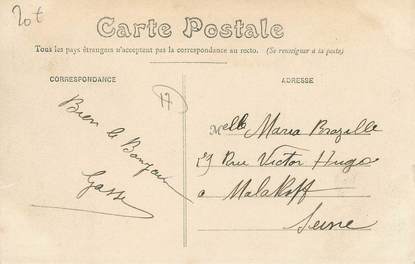 20t
Carte Postale
Tous les pays étrangers n'acceptent pas la correspondance au recto. (Se renseigner à la poste)
CORRESPONDANCE
ADRESSE
17
Bien le Bonjour
Gasse
Melle Maria Brazille
29 Rue Victor Hugo
a Malakoff
Seine